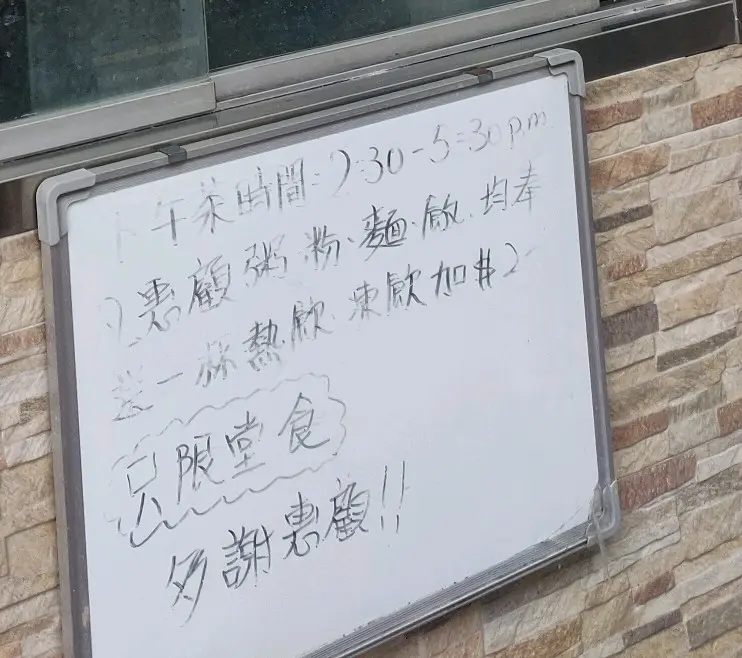 下午茶時間：2:30-5:30p.m
凡惠顧粥．粉．麵．飯．均奉
送一杯熱飲．凍飲加$2
只限堂食
多謝惠顧!!